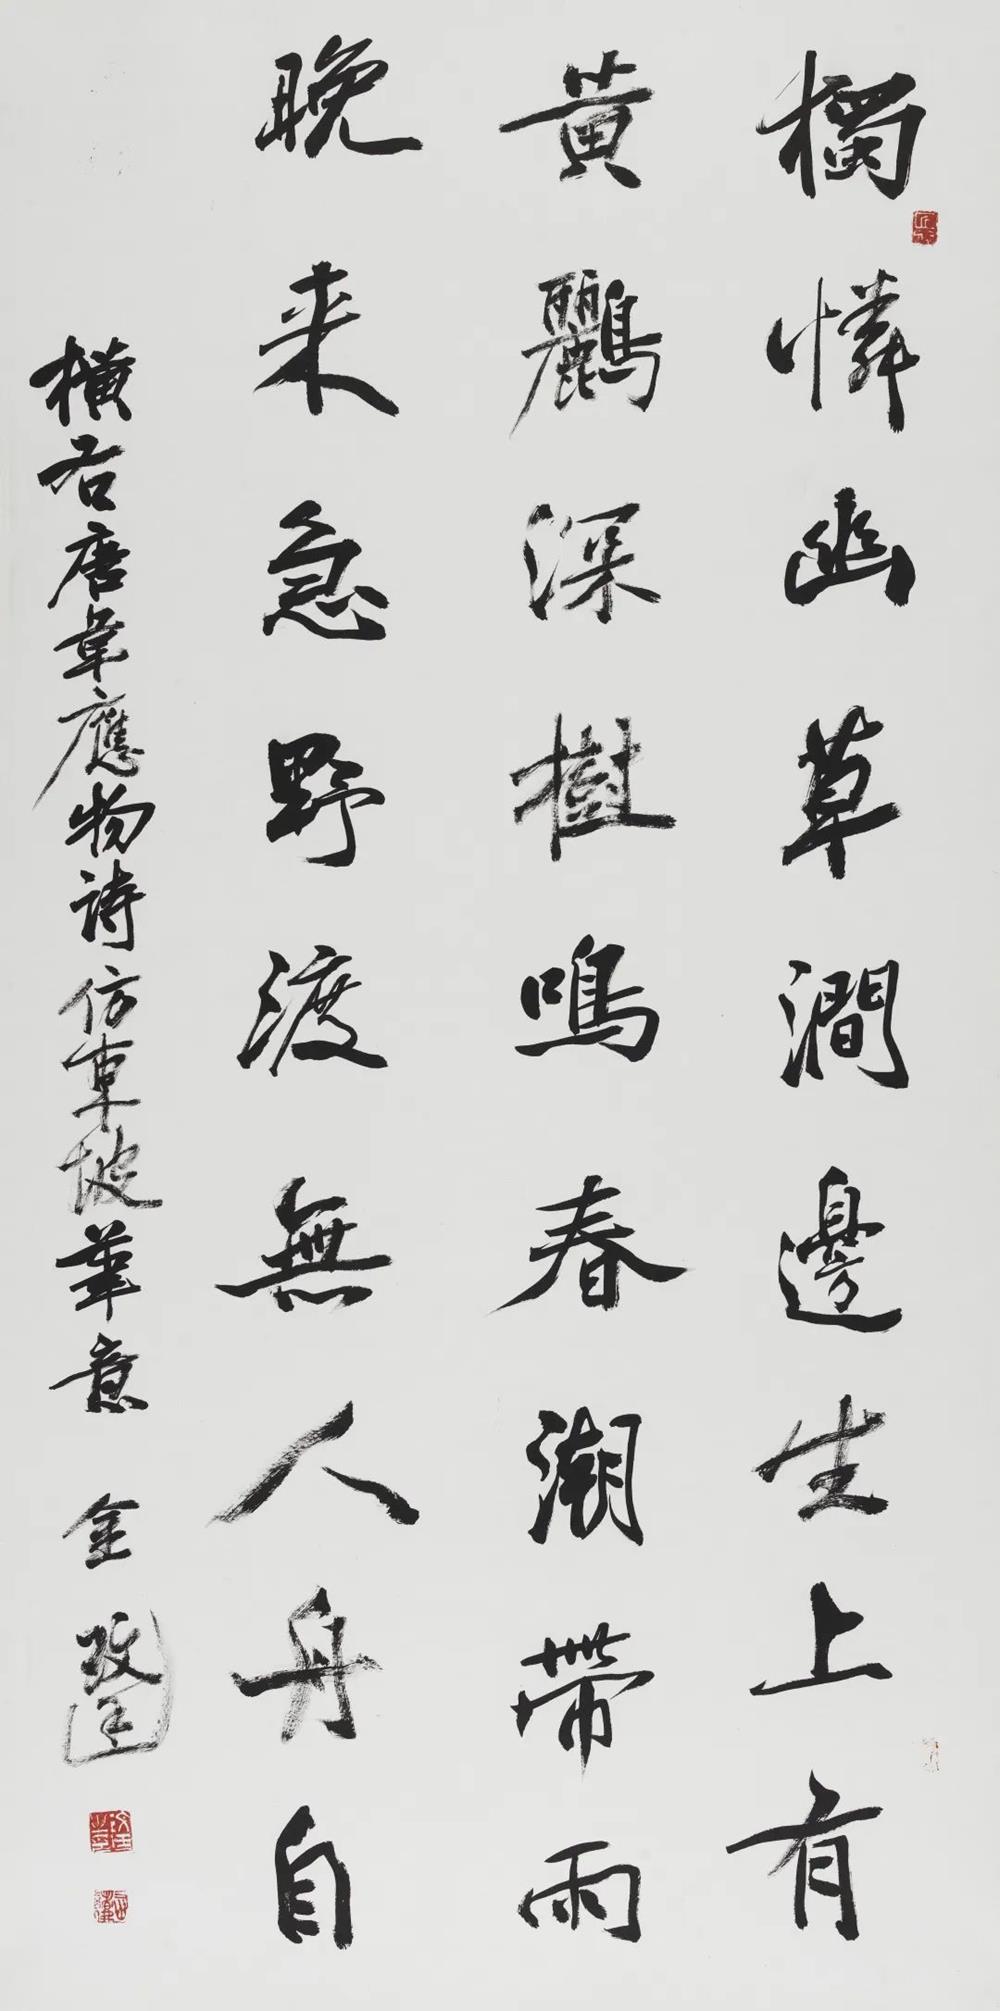 獨憐幽草澗邊生上有
黃鸝深樹鳴春潮帶雨
晚来急野渡無人舟自
橫右唐韋應物詩仿東坡筆意 金